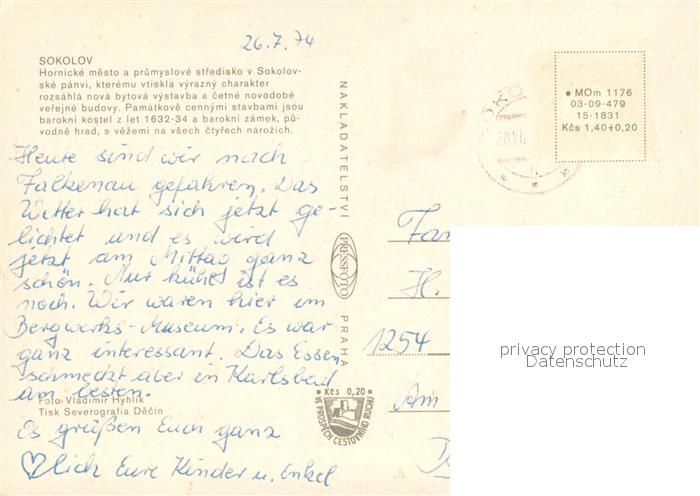 26.7.74
SOKOLOV
Hornické město a průmyslové středisko v Sokolov-
ské pánvi, kterému vtiskla výrazný charakter
rozsáhlá nová bytová výstavba a četné novodobé
veřejné budovy. Památkově cennými stavbami jsou
barokní kostel z let 1632-34 a barokní zámek, pů-
vodně hrad, s věžemi na všech čtyřech nárožích.
Heute sind wir nach
Falkenau gefahren. Das
Wetter hat sich jetzt ge-
lichtet und es wird
jetzt am Mittag ganz
schön. Nur kühl ist es
noch. Wir waren hier im
Bergwerks-Museum. Es war
ganz interessant. Das Essen
schmeckt aber in Karlsbad
am besten.
Foto Vladimír Hyhlík
Tisk Severografia Děčín
Es grüßen Euch ganz
♡lich Eure Kinder u. Enkel
NAKLADATELSTVÍ
PRESSFOTO
PRAHA
Kčs 0,20
VE PROSPĚCH CESTOVNÍHO RUCHU
SOKO
26.VII
● MOm 1176
03-09-479
15-1831
Kčs 1,40+0,20
Fam
H.
1254
Am
privacy protection
Datenschutz